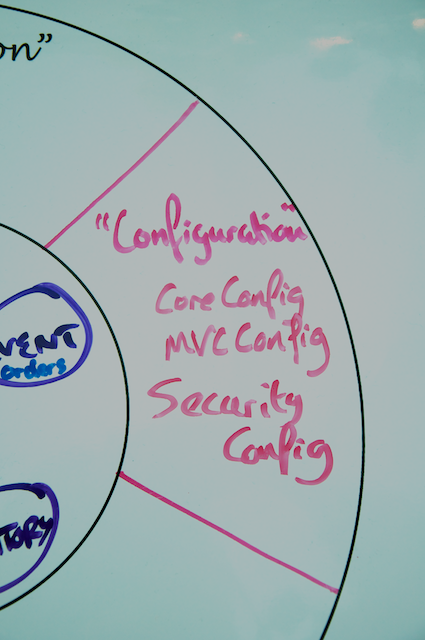 on”
“Configuration”
Core Config
MVC Config
Security
Config
VENT
orders
TORY